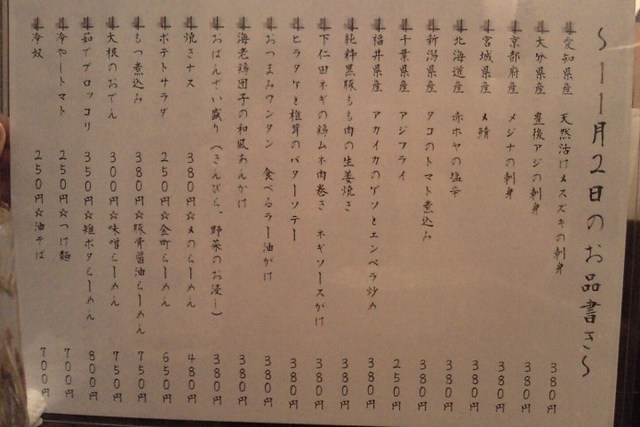 ～11月2日のお品書き～
愛知県産 天然活〆メスズキの刺身 380円
大分県産 豊後アジの刺身 380円
京都府産 メジナの刺身 380円
宮城県産 〆鯖 380円
北海道産 赤ホヤの塩辛 380円
新潟県産 タコのトマト煮込み 380円
千葉県産 アジフライ 250円
福井県産 アカイカのゲソとエンペラ炒め 380円
純粋黒豚もも肉の生姜焼き 380円
下仁田ネギの鶏ムネ肉巻き ネギソースがけ 380円
ヒラタケと椎茸のバターソテー 380円
おつまみワンタン 食べるラー油がけ 380円
海老鶏団子の和風あんかけ 380円
おばんざい盛り（きんぴら、野菜のお浸し） 380円
焼きナス 380円☆〆のらーめん 480円
ポテトサラダ 250円☆金町らーめん 650円
もつ煮込み 380円☆豚骨醤油らーめん 750円
大根のおでん 300円☆味噌らーめん 750円
茹でブロッコリ 350円☆短ポタらーめん 800円
冷やしトマト 250円☆つけ麺 700円
冷奴 250円☆油そば 700円